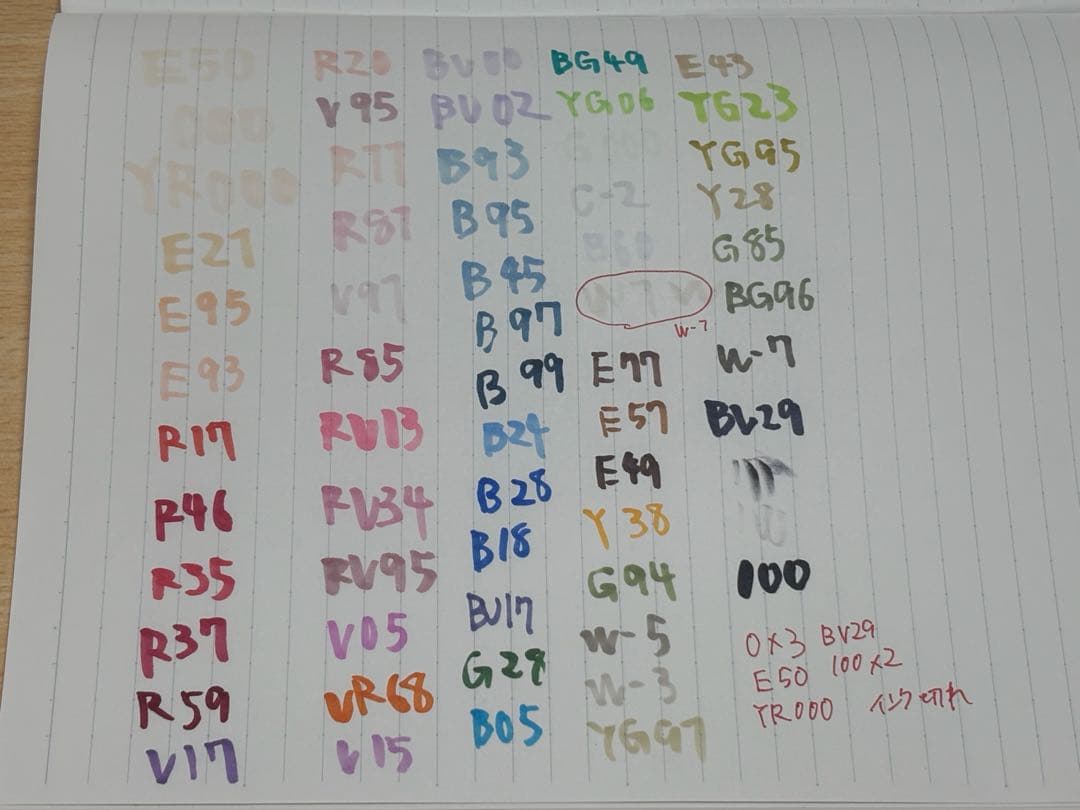 E50
000
YR000
E21
E95
E93
R17
R46
R35
R37
R59
V17
R20
V95
R11
R81
V91
R85
RV13
RV34
RV95
V05
YR68
V15
BV00
BV02
B93
B95
B45
B97
B99
B24
B28
B18
BV17
G28
B05
BG49
YG06
G000
C-2
B60
W-7
W-7
E77
E57
E49
Y38
G94
W-5
W-3
YG97
E43
YG23
YG95
Y28
G85
BG96
W-7
BV29
100
100
0×3 BV29
E50 100×2
YR000 インク切れ